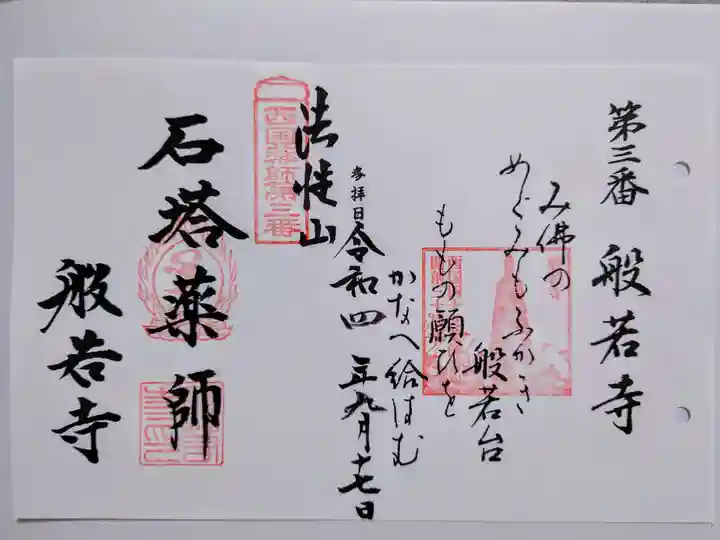 第三番 般若寺
み佛の
めぐみもふかき
般若台
ももの願ひを
かなへ給はむ
参拝日 令和四年九月十七日
法性山
西国薬師第三番
石塔薬師
般若寺